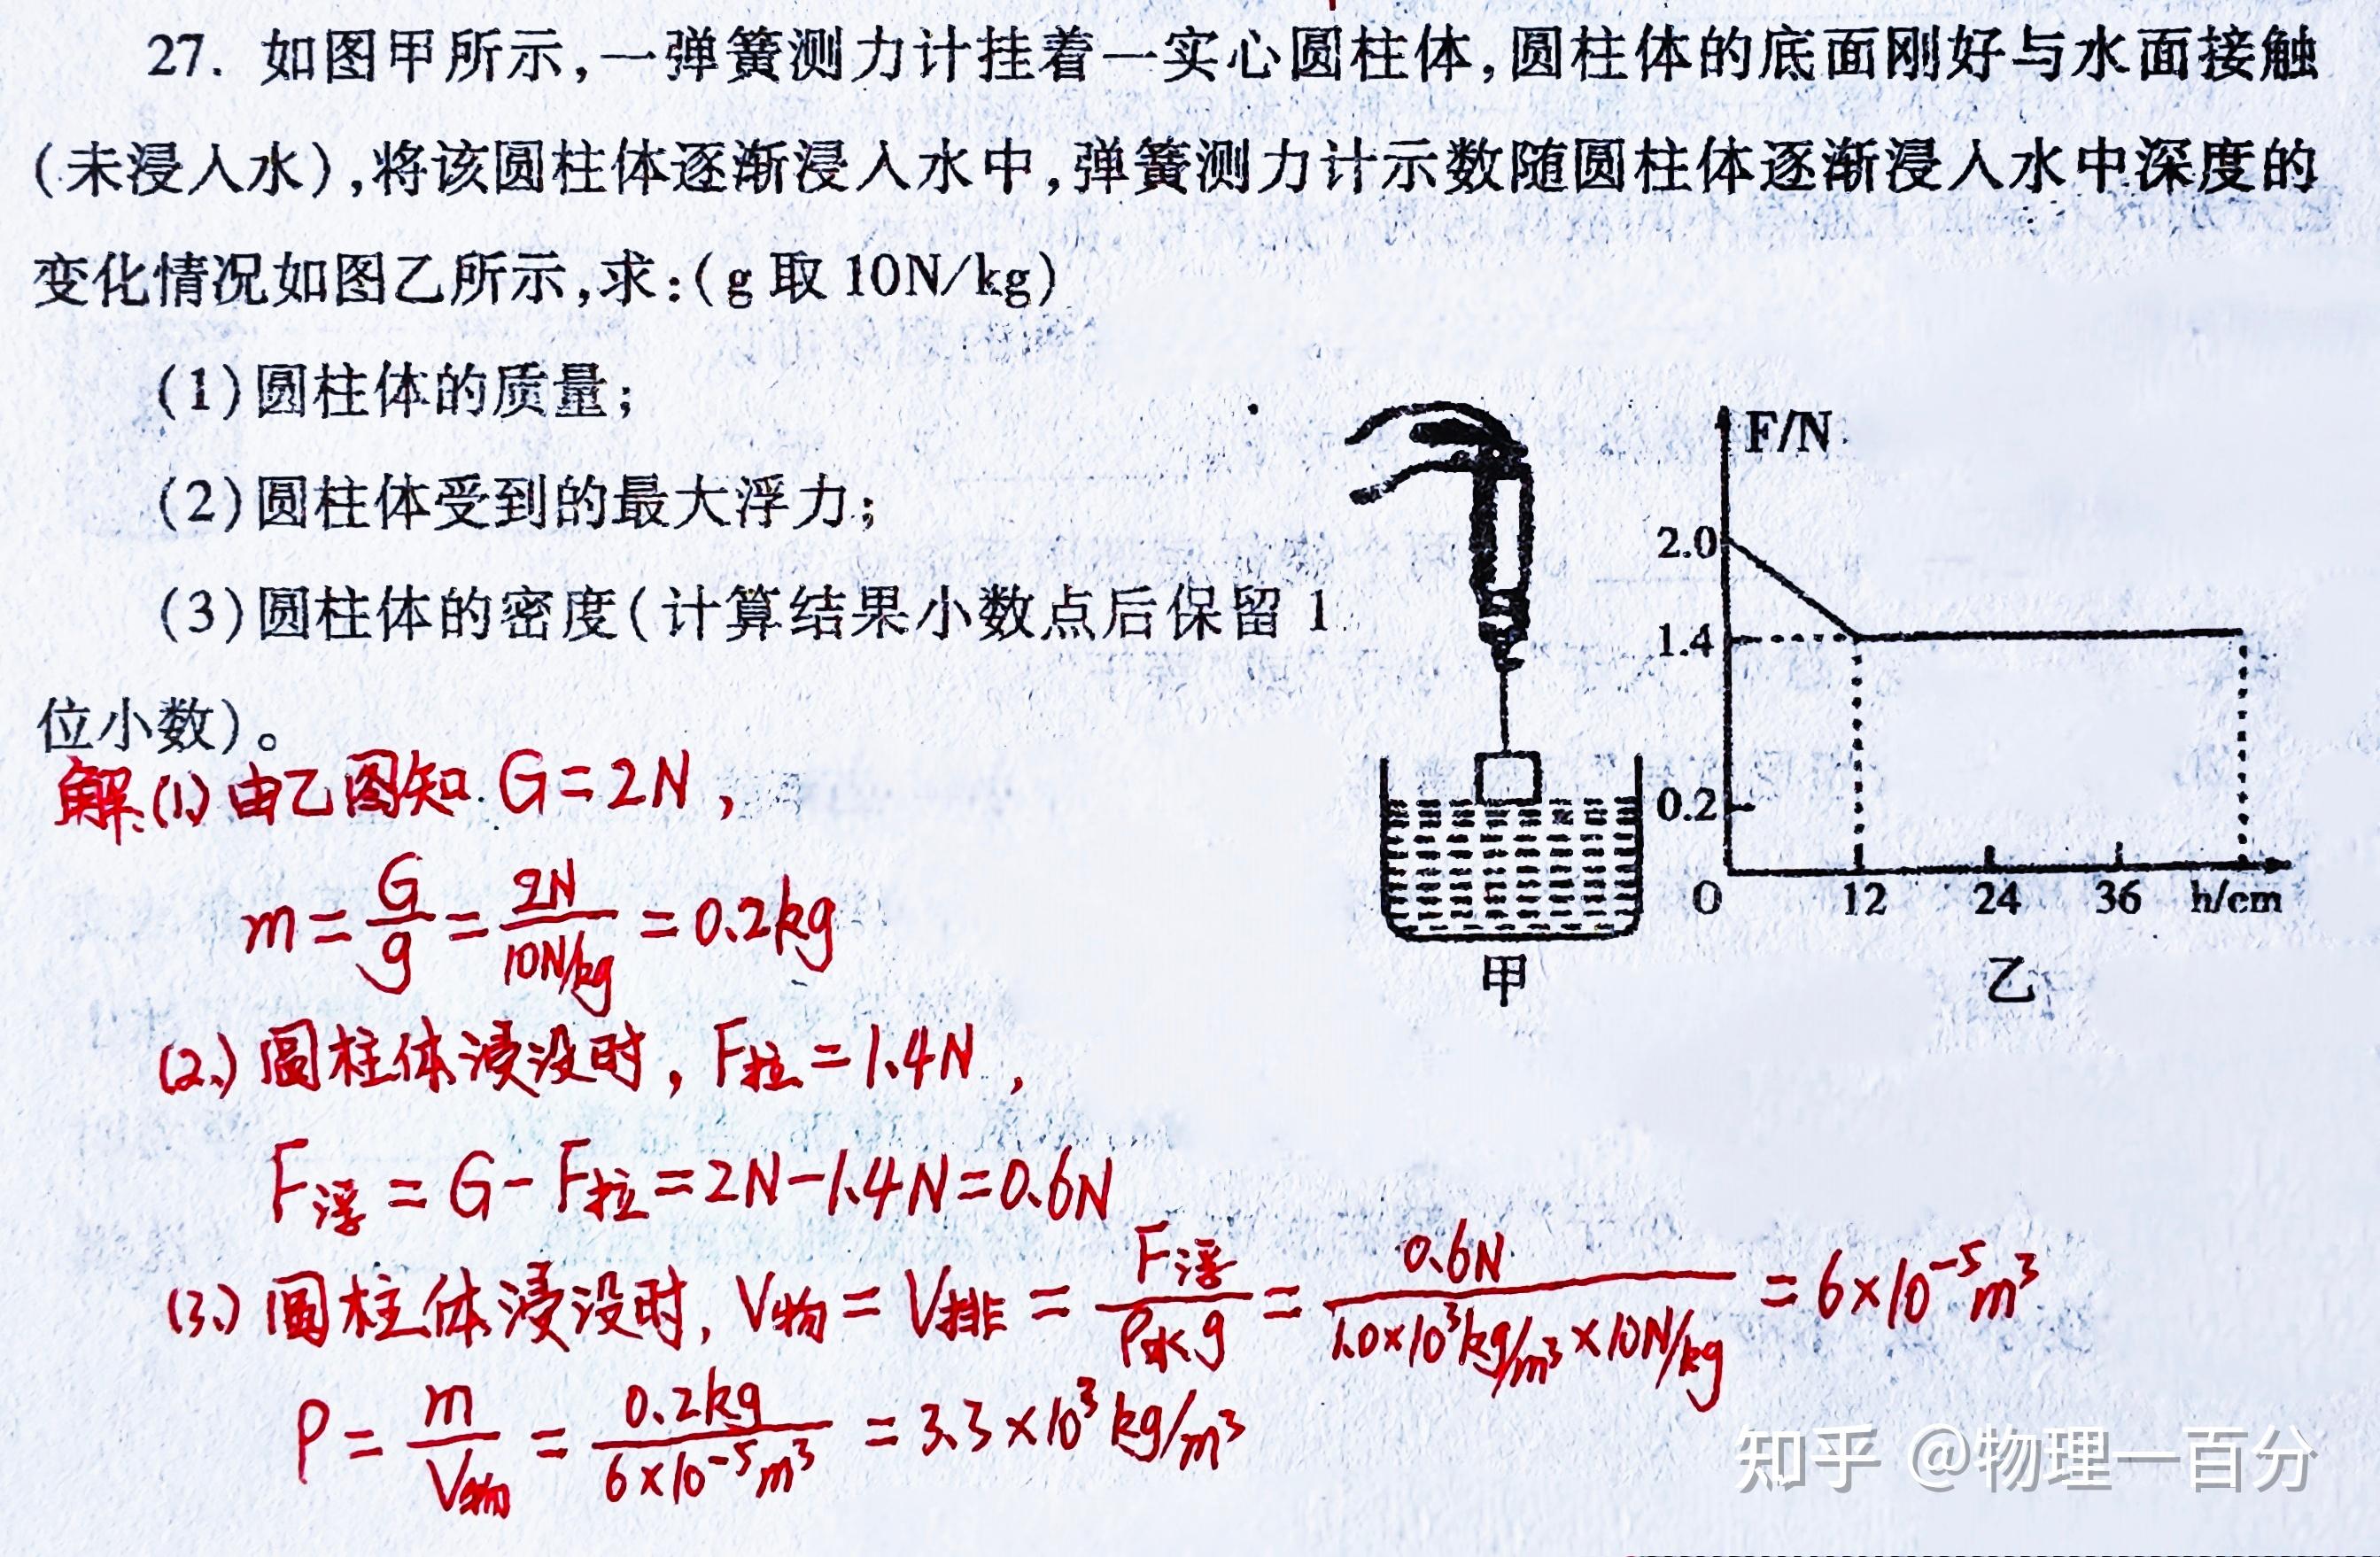 27. 如图甲所示,一弹簧测力计挂着一实心圆柱体,圆柱体的底面刚好与水面接触
(未浸入水),将该圆柱体逐渐浸入水中,弹簧测力计示数随圆柱体逐渐浸入水中深度的
变化情况如图乙所示,求:(g取10N/kg)
(1)圆柱体的质量;
(2)圆柱体受到的最大浮力;
(3)圆柱体的密度(计算结果小数点后保留1
位小数)。
F/N
2.0
1.4
0.2
O 12 24 36 h/cm
甲 乙
解:(1)由乙图知 G=2N,
m=G/g=2N/10N/kg=0.2kg
(2)圆柱体浸没时,F拉=1.4N,
F浮=G-F拉=2N-1.4N=0.6N
(3)圆柱体浸没时,V物=V排=F浮/ρ水g=0.6N/1.0×10³kg/m³×10N/kg=6×10⁻⁵m³
ρ=m/V物=0.2kg/6×10⁻⁵m³=3.3×10³kg/m³
知乎 @物理一百分